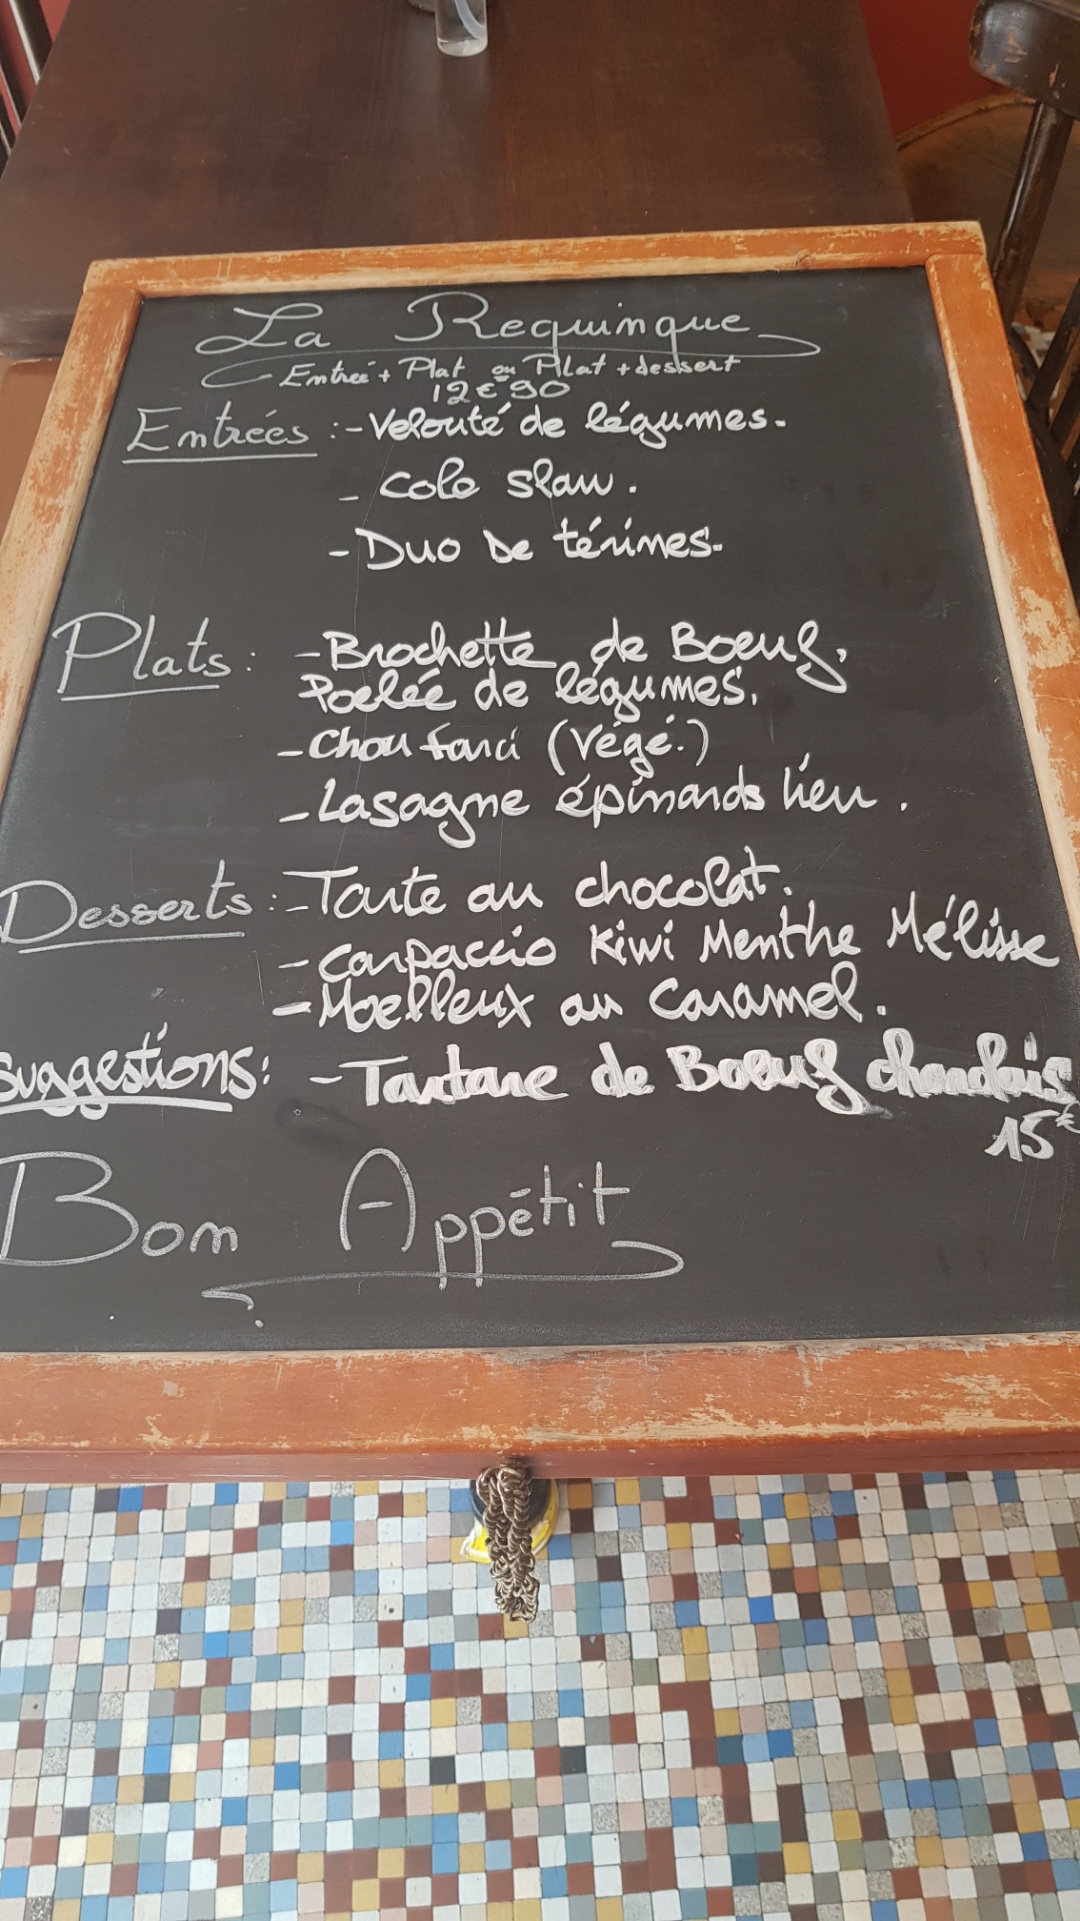 La Requinque
Entrée + Plat ou Plat + dessert
12€90
Entrées : - Velouté de légumes.
- Cole slaw.
- Duo de térines.
Plats : - Brochette de Boeuf,
Poelée de légumes.
- Chou farci (Végé.)
- Lasagne épinards lieu.
Desserts : - Tarte au chocolat.
- Carpaccio Kiwi Menthe Mélisse
- Moelleux au Caramel.
Suggestions : - Tartare de Boeuf charolais
15€
Bon Appétit